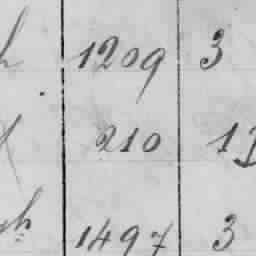 h 1209 3
210
1497 3